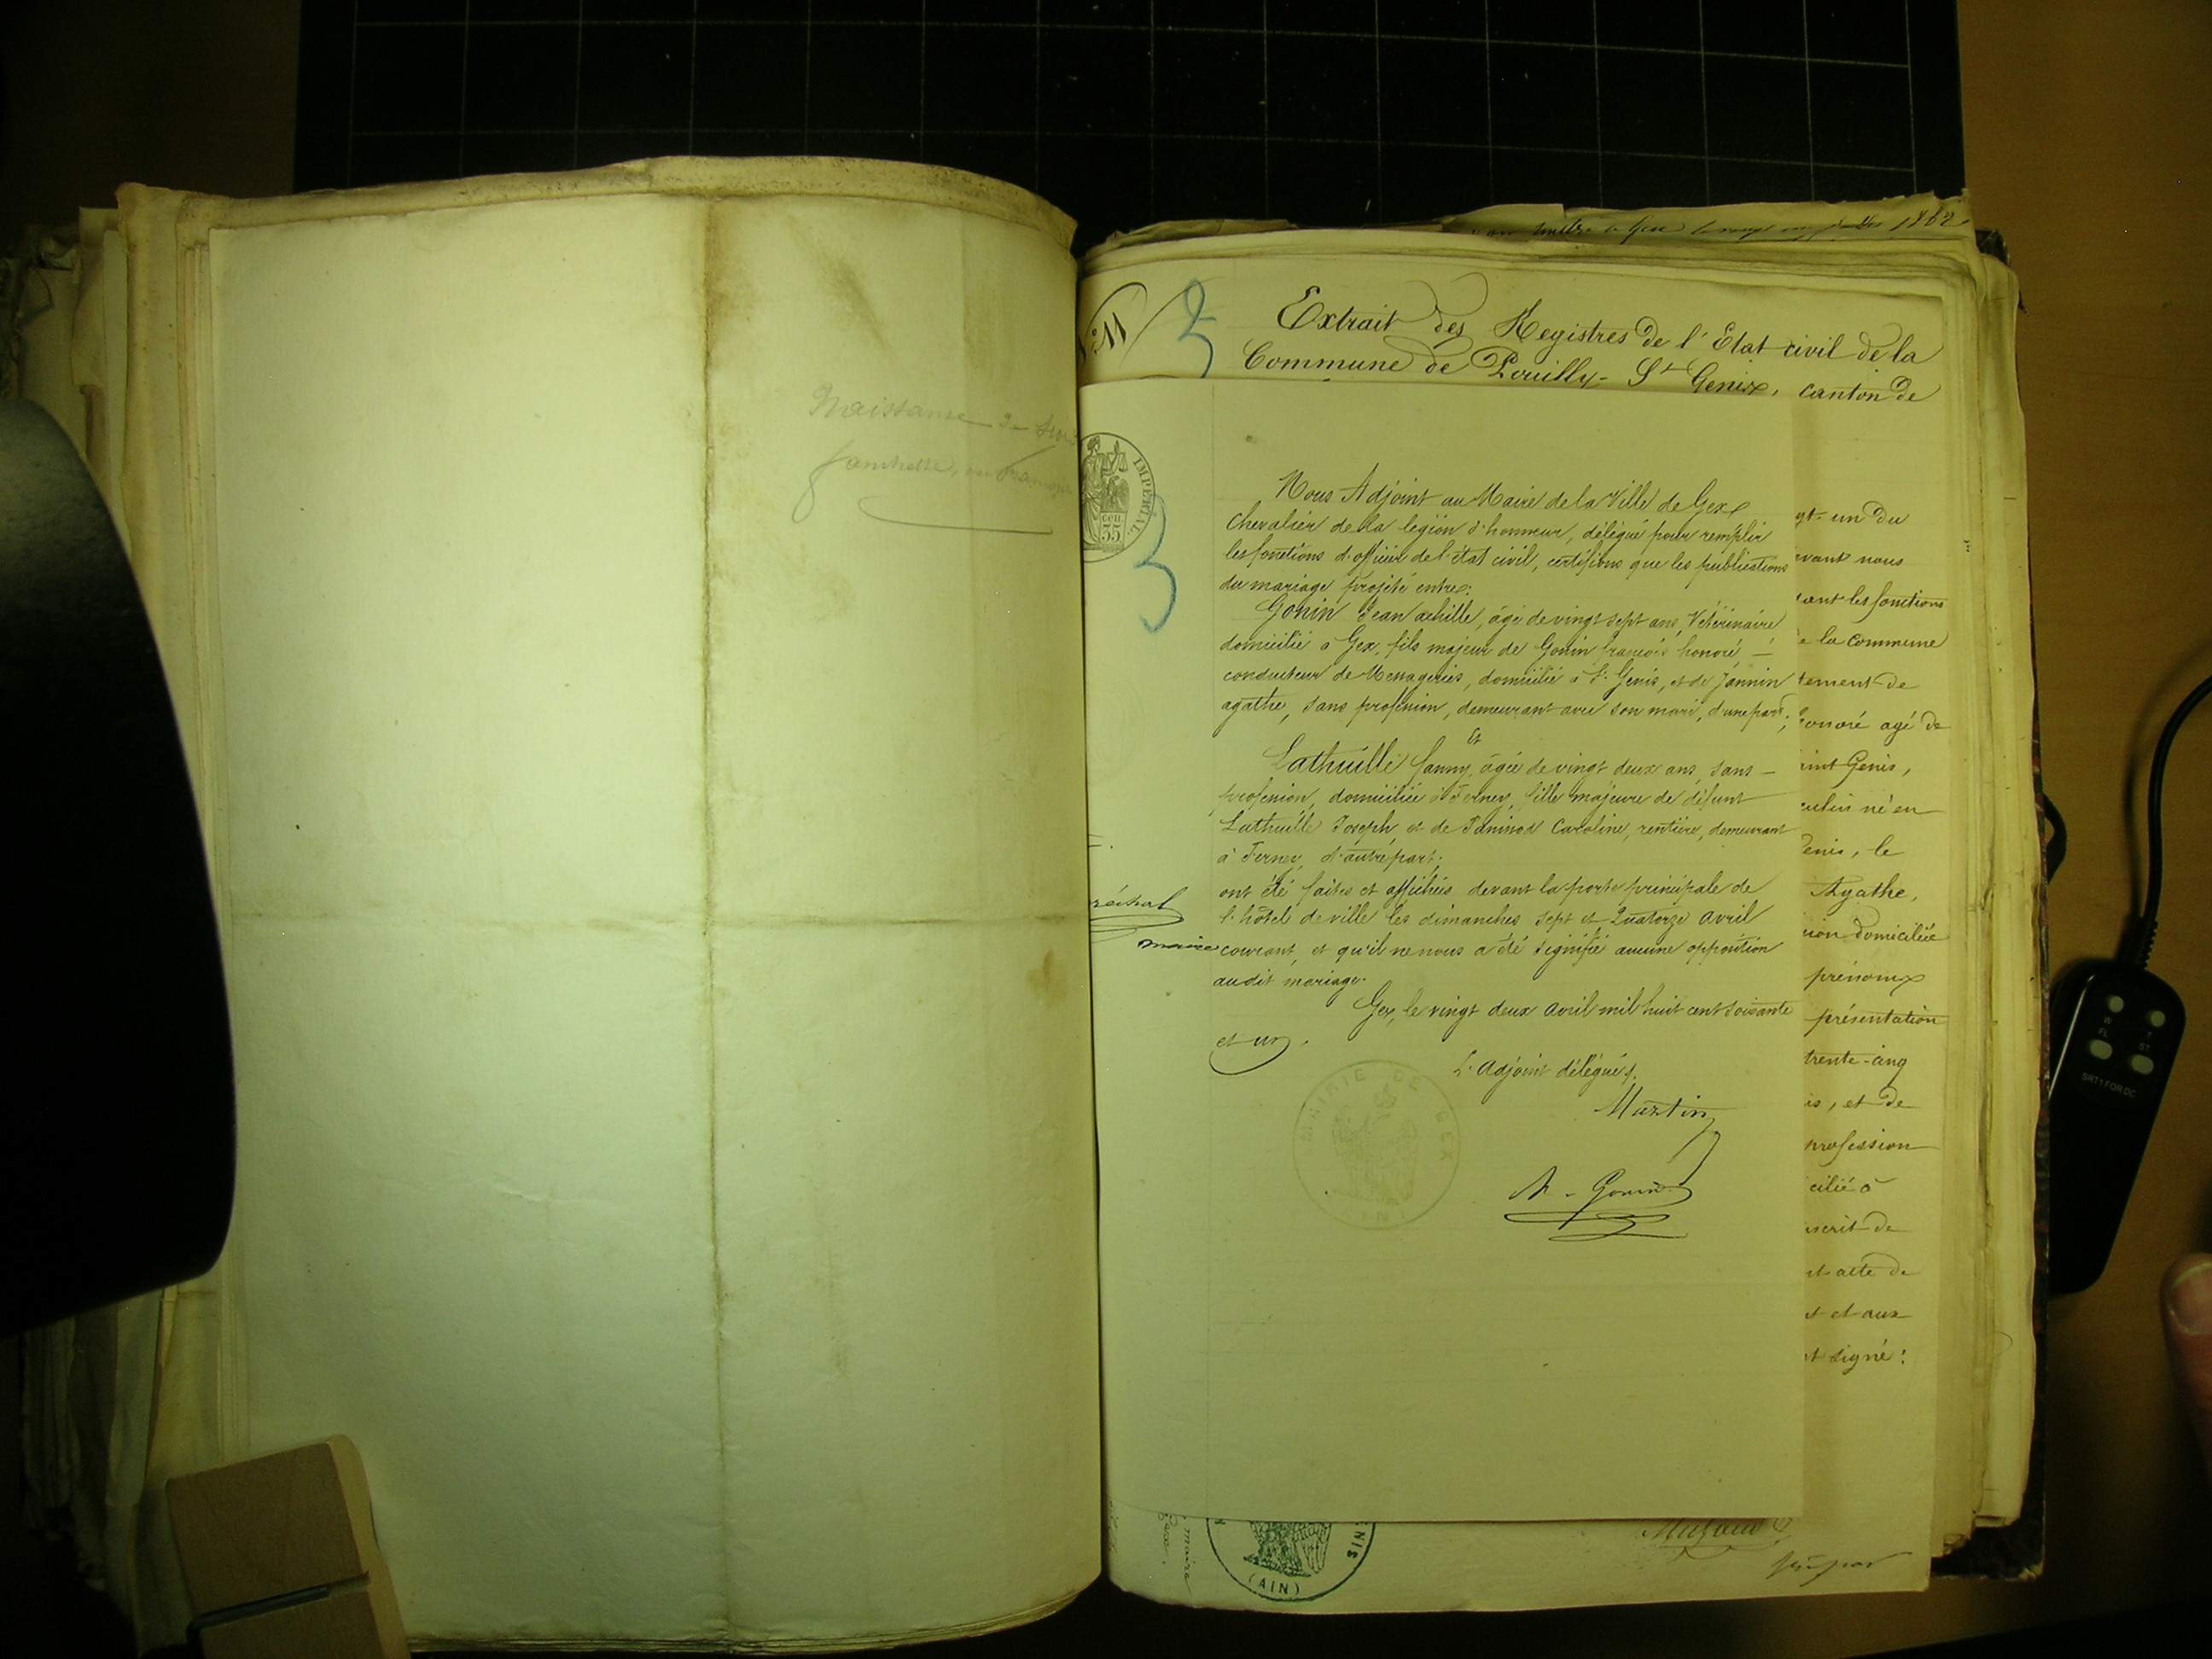 Naissance de
1862
N° 11
Extrait des Registres de l'Etat civil de la
Commune de Pouilly-St Genix, canton de
IMPERIAL.
55
Nous Adjoint au Maire de la Ville de Gex
Chevalier de la légion d'honneur, délégué pour remplir
les fonctions d'officier de l'état civil, certifions que les publications
du mariage projeté entre:
Gonin Jean achille, âgé de vingt sept ans, Vétérinaire
domicilié à Gex, fils majeur de Gonin françois honoré —
conducteur de Messageries, domicilié à St. Genis, et de Jannin
agathe, sans profession, demeurant avec son mari, d'une part;
Et
Lathuille fanny, âgée de vingt deux ans, sans —
profession, domiciliée à Ferney, fille majeure de défunt
Lathuille Joseph et de Caroline, rentière, demeurant
à Ferney, d'autre part;
ont été faites et affichées devant la porte principale de
l'hôtel de ville les dimanches sept et Quatorze avril
courant, et qu'il ne nous a été signifié aucune opposition
audit mariage.
Gex, le vingt deux avril mil huit cent soixante
et un.
L'Adjoint délégué,
Martin
MAIRIE DE GEX
A. Gonin
maire
gt-un du
evant nous
ant les fonctions
e la Commune
tement de
onoré agé de
int Genis,
culin né en
enis, le
Agathe,
ion domiciliée
prénoms
présentation
trente-cinq
is, et de
profession
cilié à
scrit de
nt acte de
t et aux
nt signé:
maire
NIS
(AIN)
W
FL
T
ST